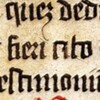 quez ded
fieri cito
estimonii